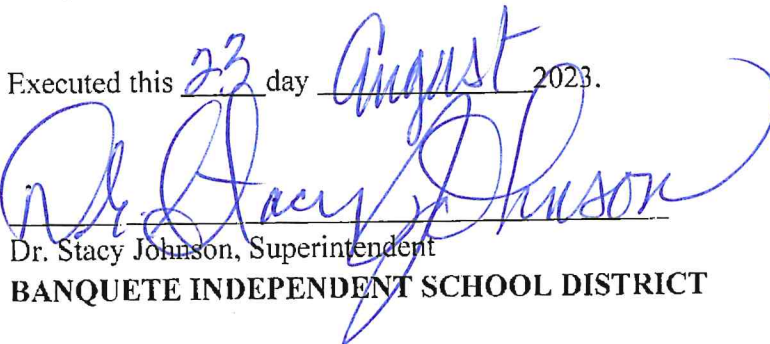 Executed this 23 day August 2023.
Dr. Stacy Johnson
Dr. Stacy Johnson, Superintendent
BANQUETE INDEPENDENT SCHOOL DISTRICT